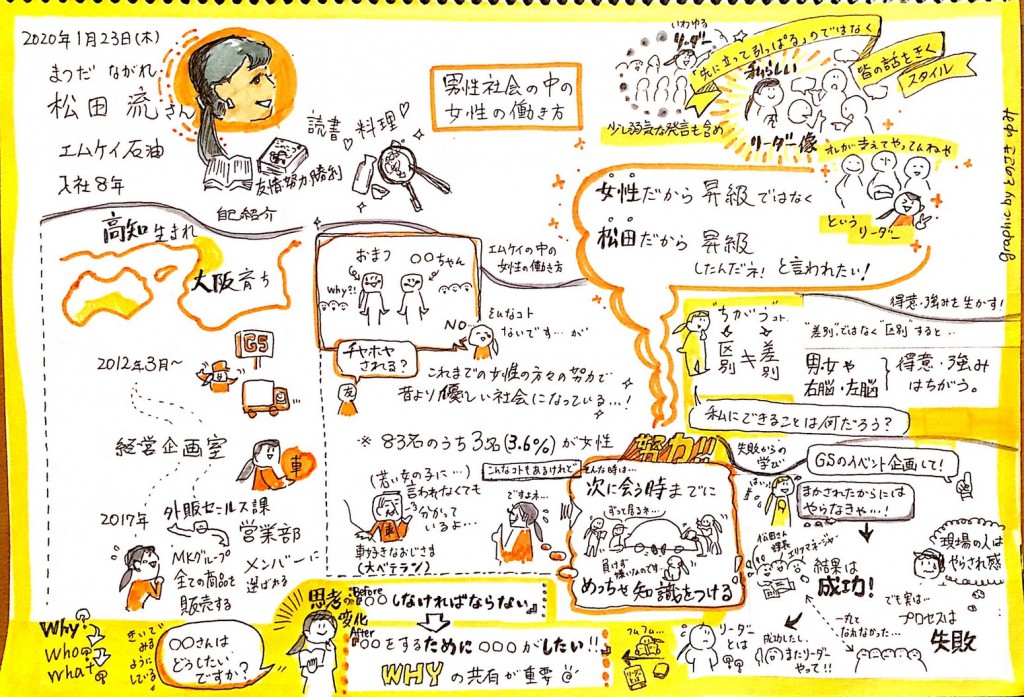 2020年1月23日(木)
まつだ ながれ
松田 流さん
エムケイ石油
入社8年
読書♡
料理♡
友情努力勝利
自己紹介
男性社会の中の
女性の働き方
いわゆる
リーダー
「先に立って引っぱる」のではなく
皆の話をきく
スタイル
私らしい
リーダー像
少し弱気な発言も含め
オレが支えてやってんねや
という
リーダー
女性だから 昇級ではなく
松田だから 昇級
したんだネ! と言われたい!
高知生まれ
大阪育ち
2012年3月〜
GS
経営企画室
車
2017年
外販セールス課
営業部
MKグループ
全ての商品を
販売する
メンバーに
選ばれる
エムケイの中の
女性の働き方
おまつ
○○ちゃん
why?!
NO…
そんなコト
ないです…が
チヤホヤ
される?
友
これまでの女性の方々の努力で
昔より優しい社会になっている…!
※ 83名のうち3名(3.6%)が女性
(若い女の子に…)
言われなくても
分かって
いるよ…
車好きなおじさま
(大ベテラン)
こんなコトもあるけれど
ですよネ…
努力!!
そんな時は…
次に会う時までに
ずっと居るネ…
負けず
嫌いなのです
めっちゃ知識をつける
得意・強みを生かす!
"ちがう"コト
区別≠差別
"差別"ではなく"区別"すると…
男・女や
右脳・左脳
得意・強み
はちがう。
私にできることは何だろう?
失敗からの
学び
GSのイベント企画して!
はいっ!
まかされたからには
やらなきゃ…!
松田さん
課長
エリアマネージャー
結果は
成功!
現場の人は
やらされ感
でも実は…
プロセスは
失敗
一丸と
なれなかった…
リーダー
とは
成功したし
またリーダー
やって!!
思考の
変化
Before
○○しなければならない
After
○○をするために○○○がしたい!!
WHYの共有が重要
フムフム…
Why?
Who?
What?
きいて
みる
ように
している
○○さんは
どうしたい
ですか?
graphic by みゆきごろう